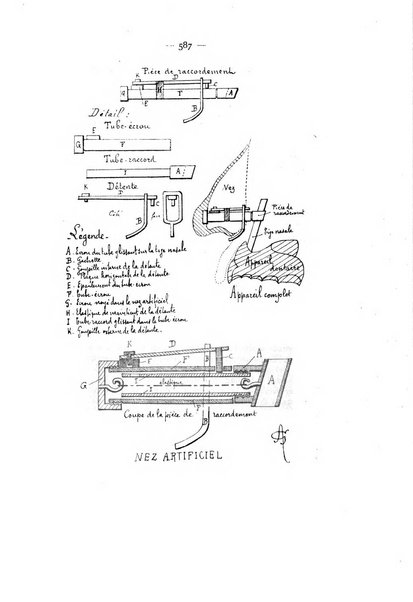 — 587 —
Pièce de raccordement
K D C
G T A
E B
Détail:
Tube-écrou
E
G F
Tube-raccord
I A
Détente
K D C
Côté
B
Nez
Pièce de
raccordement
Tige nasale
Appareil
dentaire
Appareil complet
Légende.
A. Ecrou du tube glissant sur la tige nasale
B. Gachette
C. Goupille interne de la détente
D. horizontale de la détente
E. Epaulement du tube-écrou
F. tube-écrou
G. Ecrou noyé dans le nez artificiel
H. Elastique de caoutchouc de la détente
I. tube raccord glissant dans le tube-écrou
K. Goupille externe de la détente.
K D B C
E F A
G I élastique A
I
F
Coupe de la pièce de raccordement
B
NEZ ARTIFICIEL